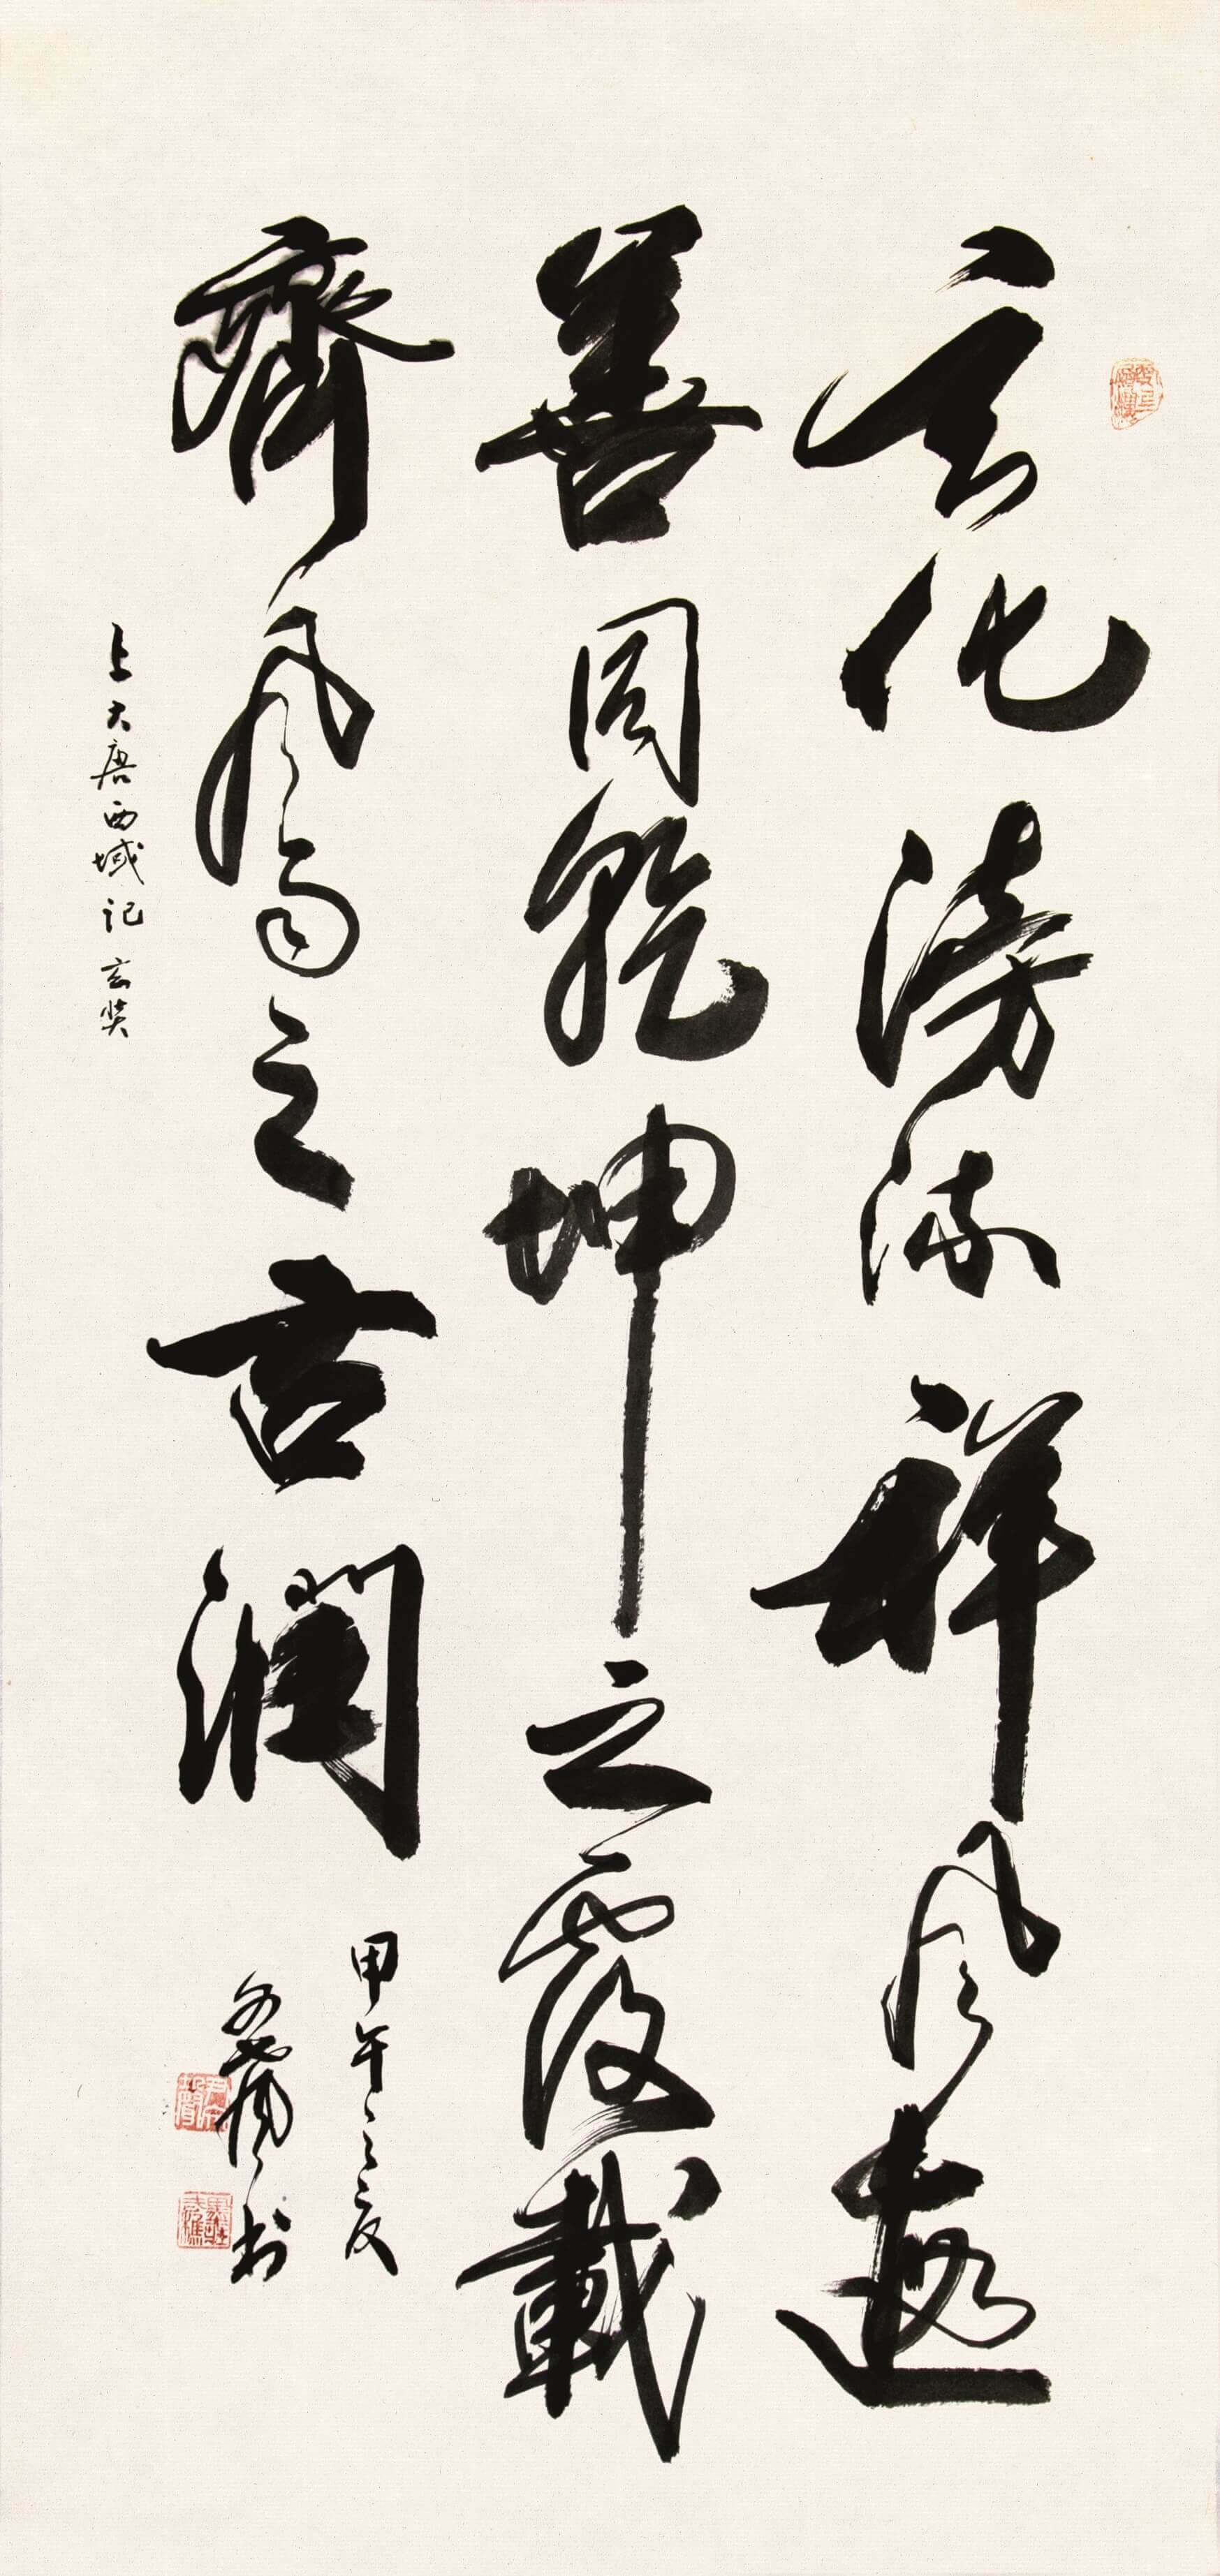 玄化滂流祥風遐
善同乾坤之覆載
齊風雨之古潤
甲午之夏
书
上大唐西域記 玄奘